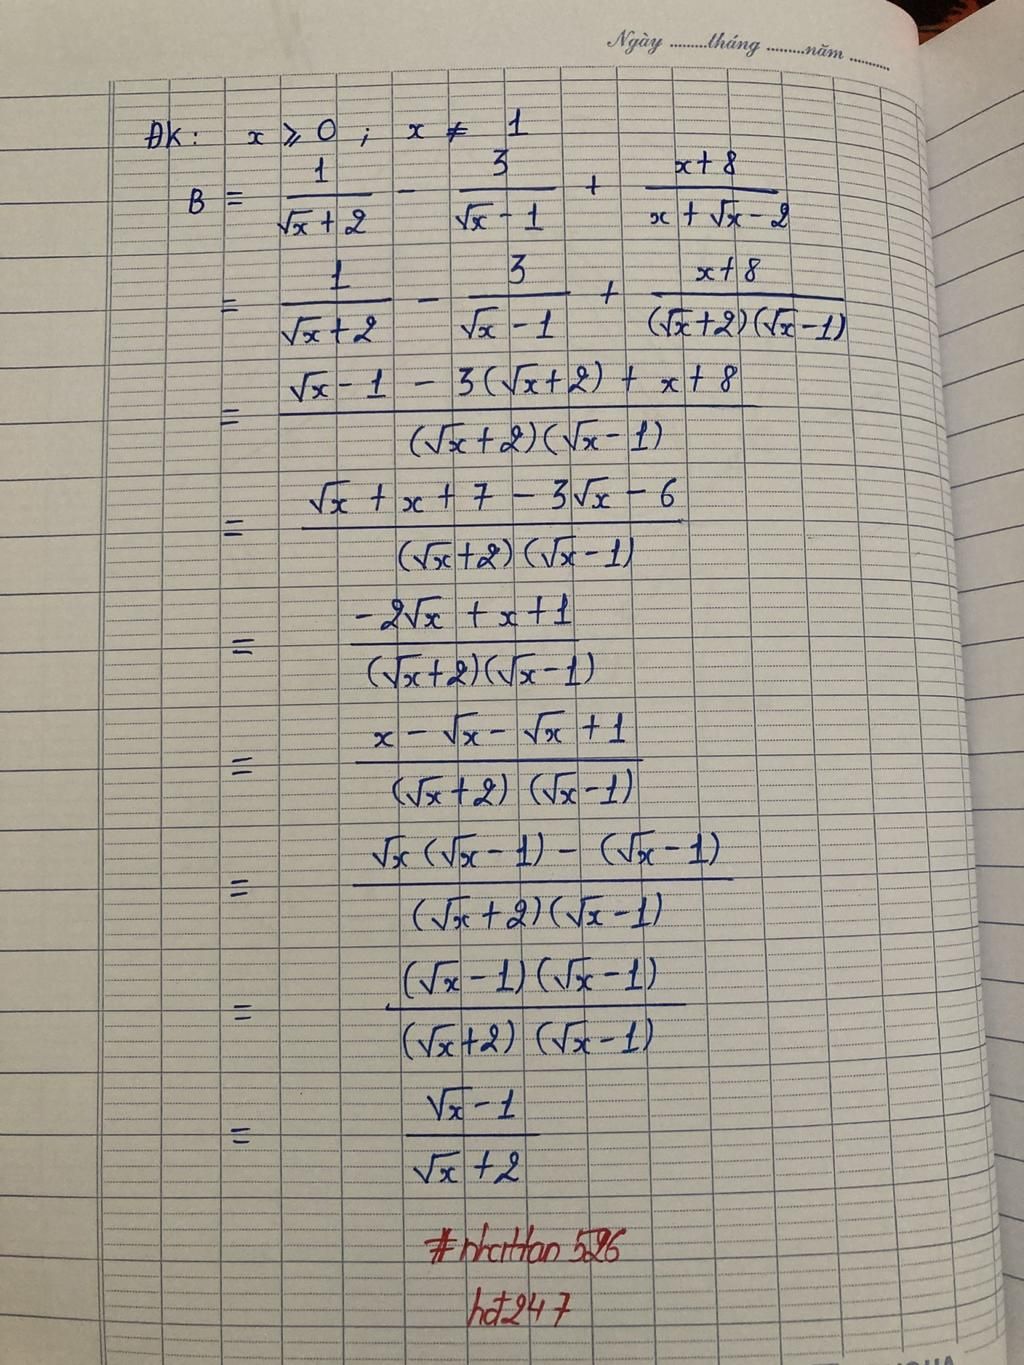 Ngày .........tháng .........năm .........
ĐK: x ⩾ 0 ; x ≠ 1
B = 1/(√x + 2) - 3/(√x - 1) + (x + 8)/(x + √x - 2)
= 1/(√x + 2) - 3/(√x - 1) + (x + 8)/((√x + 2)(√x - 1))
= (√x - 1 - 3(√x + 2) + x + 8)/((√x + 2)(√x - 1))
= (√x + x + 7 - 3√x - 6)/((√x + 2)(√x - 1))
= (-2√x + x + 1)/((√x + 2)(√x - 1))
= (x - √x - √x + 1)/((√x + 2)(√x - 1))
= (√x(√x - 1) - (√x - 1))/((√x + 2)(√x - 1))
= ((√x - 1)(√x - 1))/((√x + 2)(√x - 1))
= (√x - 1)/(√x + 2)
hđ247